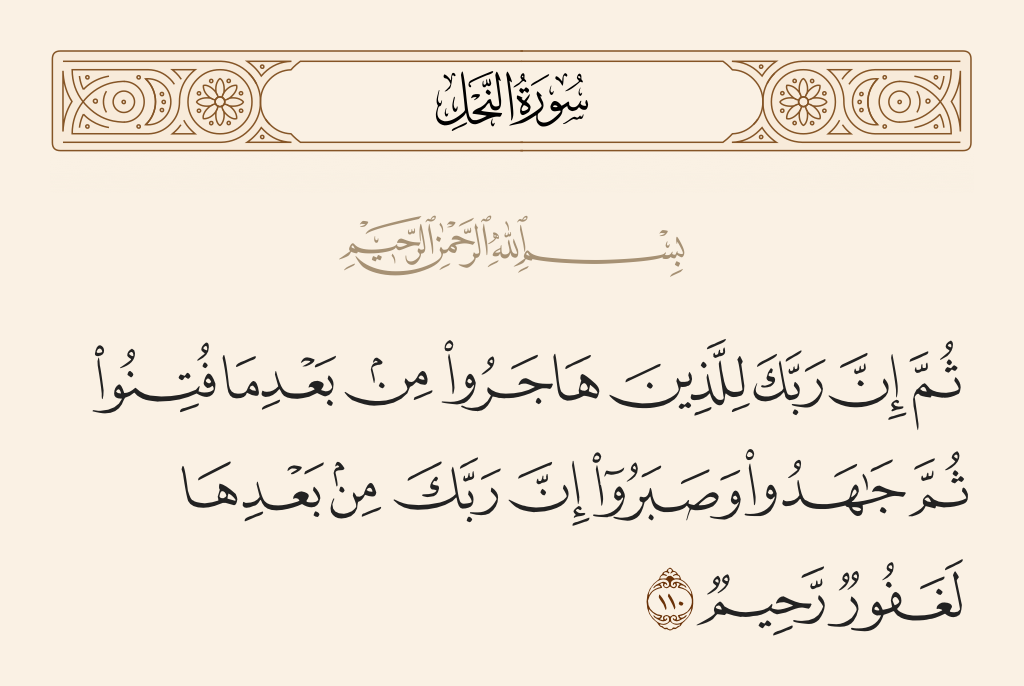 سُورَةُ النَّحْلِ
بِسْمِ ٱللَّهِ ٱلرَّحْمَٰنِ ٱلرَّحِيمِ
ثُمَّ إِنَّ رَبَّكَ لِلَّذِينَ هَاجَرُوا۟ مِنۢ بَعْدِ مَا فُتِنُوا۟
ثُمَّ جَـٰهَدُوا۟ وَصَبَرُوٓا۟ إِنَّ رَبَّكَ مِنۢ بَعْدِهَا
لَغَفُورٌ رَّحِيمٌ ١١٠